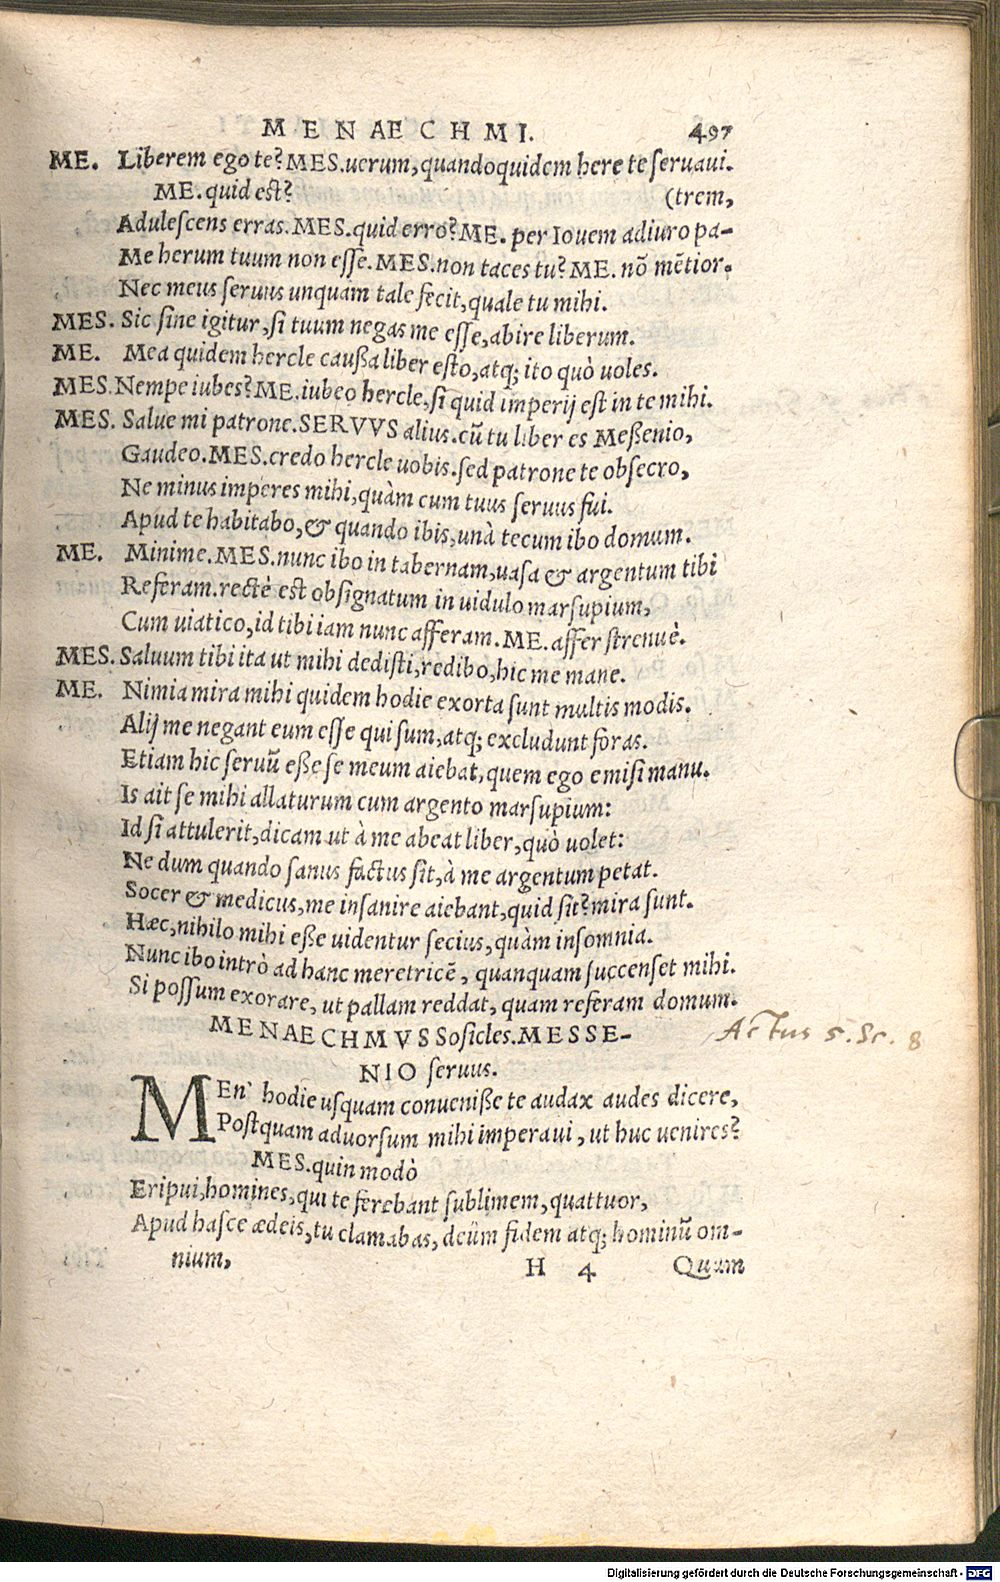 MENAECHMI. 497
ME. Liberem ego te? MES. uerum, quandoquidem here te seruaui.
ME. quid est? (trem,
Adulescens erras. MES. quid erro? ME. per Iouem adiuro pa-
Me herum tuum non esse. MES. non taces tu? ME. nõ mẽtior.
Nec meus seruus unquam tale fecit, quale tu mihi.
MES. Sic sine igitur, si tuum negas me esse, abire liberum.
ME. Mea quidem hercle caußa liber esto, atq; ito quò uoles.
MES. Nempe iubes? ME. iubeo hercle, si quid imperij est in te mihi.
MES. Salue mi patrone. SERVVS alius. cũ tu liber es Meßenio,
Gaudeo. MES. credo hercle uobis. sed patrone te obsecro,
Ne minus imperes mihi, quàm cum tuus seruus fui.
Apud te habitabo, & quando ibis, unà tecum ibo domum.
ME. Minime. MES. nunc ibo in tabernam, uasa & argentum tibi
Referam. rectè est obsignatum in uidulo marsupium,
Cum uiatico, id tibi iam nunc afferam. ME. affer strenuè.
MES. Saluum tibi ita ut mihi dedisti, redibo, hic me mane.
ME. Nimia mira mihi quidem hodie exorta sunt multis modis.
Alij me negant eum esse qui sum, atq; excludunt foras.
Etiam hic seruũ eße se meum aiebat, quem ego emisi manu.
Is ait se mihi allaturum cum argento marsupium:
Id si attulerit, dicam ut à me abeat liber, quò uolet:
Ne dum quando sanus factus sit, à me argentum petat.
Socer & medicus, me insanire aiebant, quid sit? mira sunt.
Hæc, nihilo mihi eße uidentur secius, quàm insomnia.
Nunc ibo intrò ad hanc meretricẽ, quanquam succenset mihi.
Si possum exorare, ut pallam reddat, quam referam domum.
MENAECHMVS Sosicles. MESSE- Actus 5. Sc. 8
NIO seruus.
MEn' hodie usquam conueniße te audax audes dicere,
Postquam aduorsum mihi imperaui, ut huc uenires?
MES. quin modò
Eripui, homines, qui te ferebant sublimem, quattuor,
Apud hasce ædeis, tu clamabas, deûm fidem atq; hominũ om-
nium, H 4 Quam
Digitalisierung gefördert durch die Deutsche Forschungsgemeinschaft - DFG